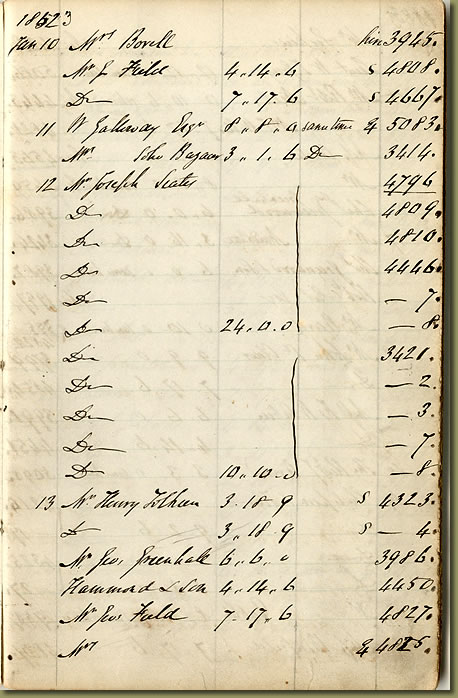 18523
Jan 10 Mrs Borell hire 3945.
Mr J. Field 4.14.6 S 4808.
Do 7.17.6 S 4667.
11 W Galloway Esqr 8.8.0 same time 4 5083.
Mrs Soho Bazaar 3.1.6 Do 3414.
12 Mr Joseph Scates 4796
Do 4809.
Do 4810.
Do 4446.
Do — 7.
Do 24.0.0 — 8.
Do 3421.
Do — 2.
Do — 3.
Do — 7.
Do 10.10.0 — 8.
13 Mr Henry 3.18.9 S 4323.
Do 3.18.9 S — 4.
Mr Geo. Greenhall 6.6.0 3986.
Hammond & Son 4.14.6 4450.
Mr Jno Field 7.17.6 4827.
Mrs 4 4825.